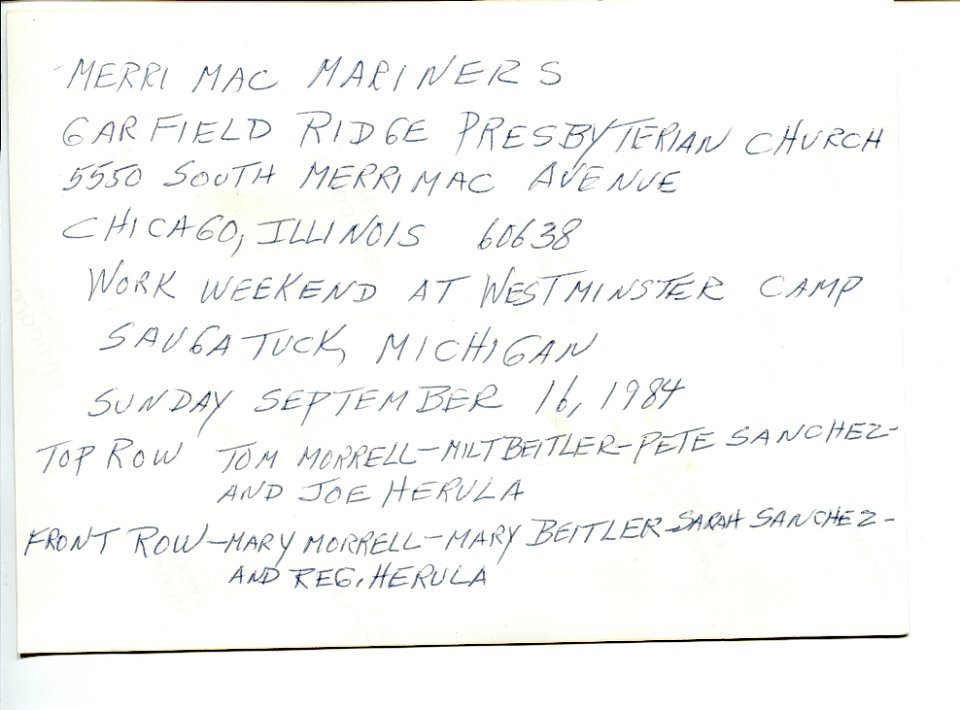 MERRI MAC MARINERS
GARFIELD RIDGE PRESBYTERIAN CHURCH
5550 SOUTH MERRIMAC AVENUE
CHICAGO, ILLINOIS 60638
WORK WEEKEND AT WESTMINSTER CAMP
SAUGATUCK, MICHIGAN
SUNDAY SEPTEMBER 16, 1984
TOP ROW TOM MORRELL-MILT BEITLER-PETE SANCHEZ-
AND JOE HERULA
FRONT ROW-MARY MORRELL-MARY BEITLER-SARAH SANCHEZ-
AND REG. HERULA